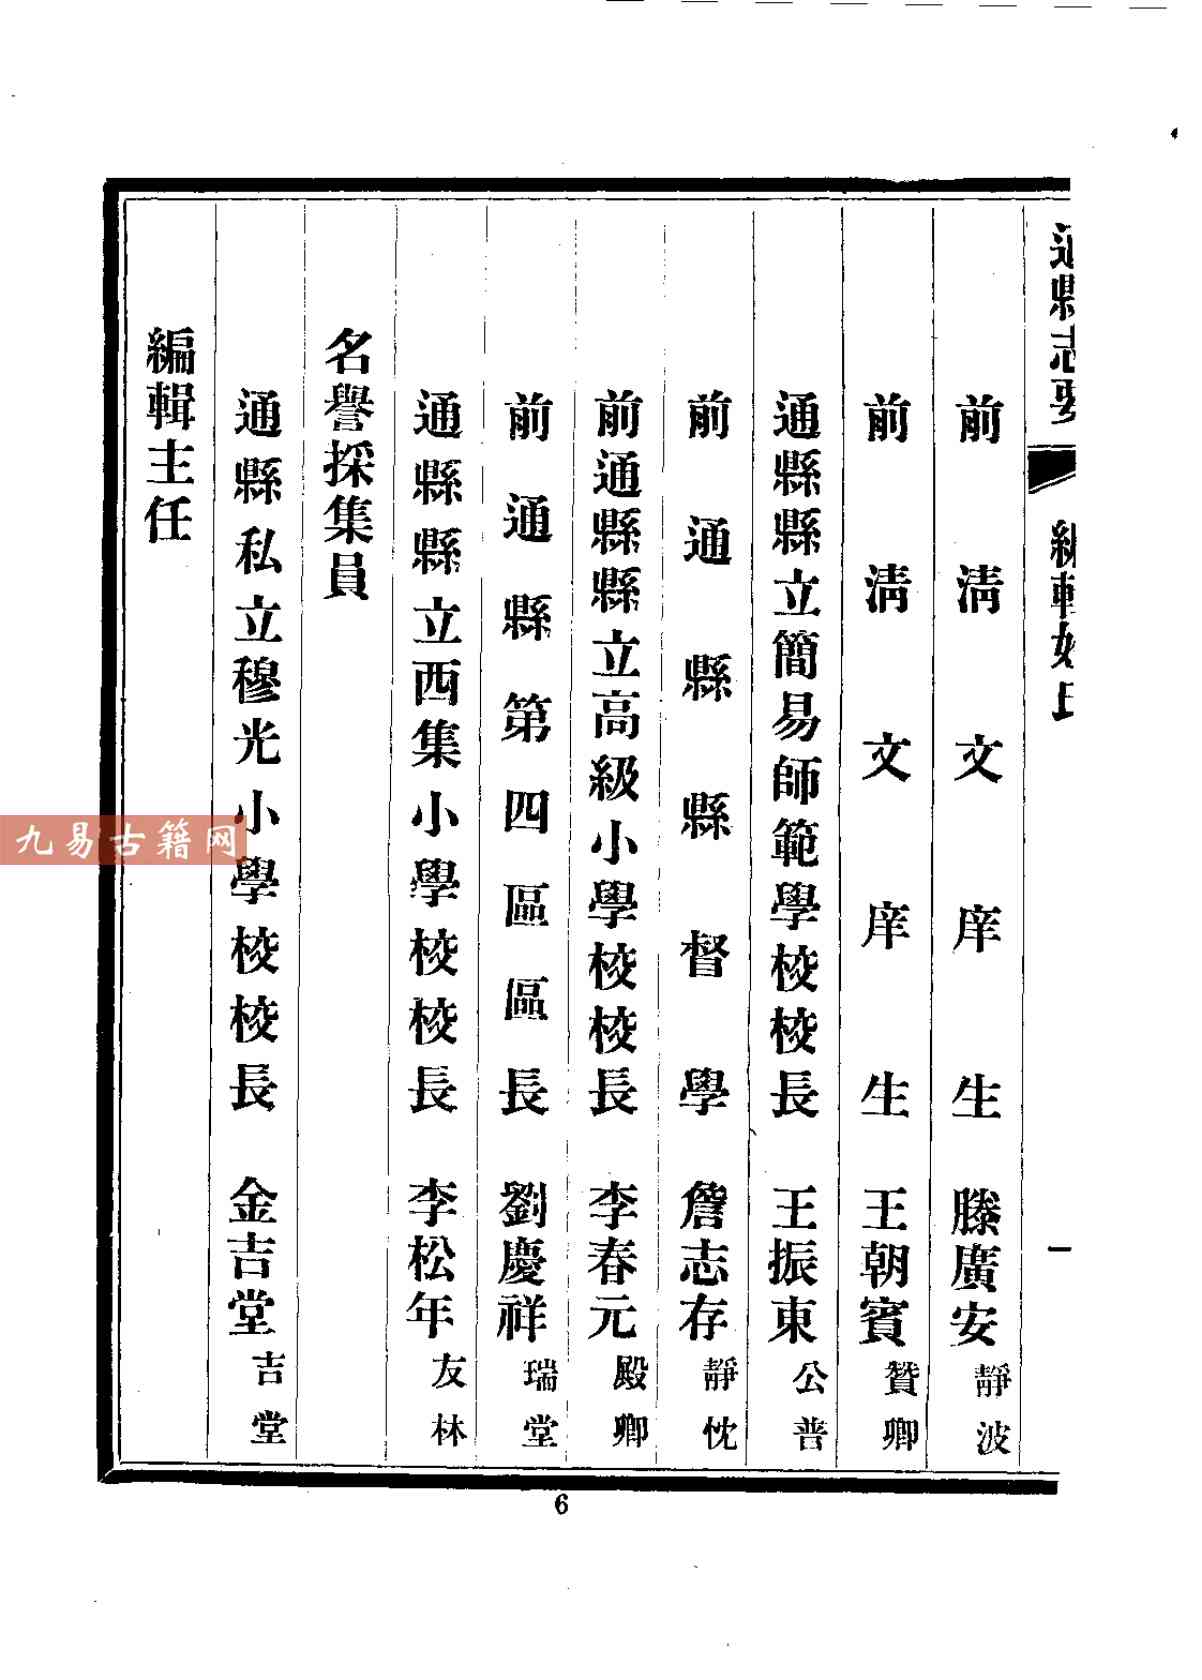 通縣志要 編輯姓氏 一
前清文庠生 滕廣安 靜波
前清文庠生 王朝賓 贊卿
通縣縣立簡易師範學校校長 王振東 公普
前通縣縣督學 詹志存 靜忱
前通縣縣立高級小學校校長 李春元 殿卿
前通縣第四區區長 劉慶祥 瑞堂
通縣縣立西集小學校校長 李松年 友林
名譽採集員
通縣私立穆光小學校校長 金吉堂 吉堂
編輯主任
6
九易古籍网